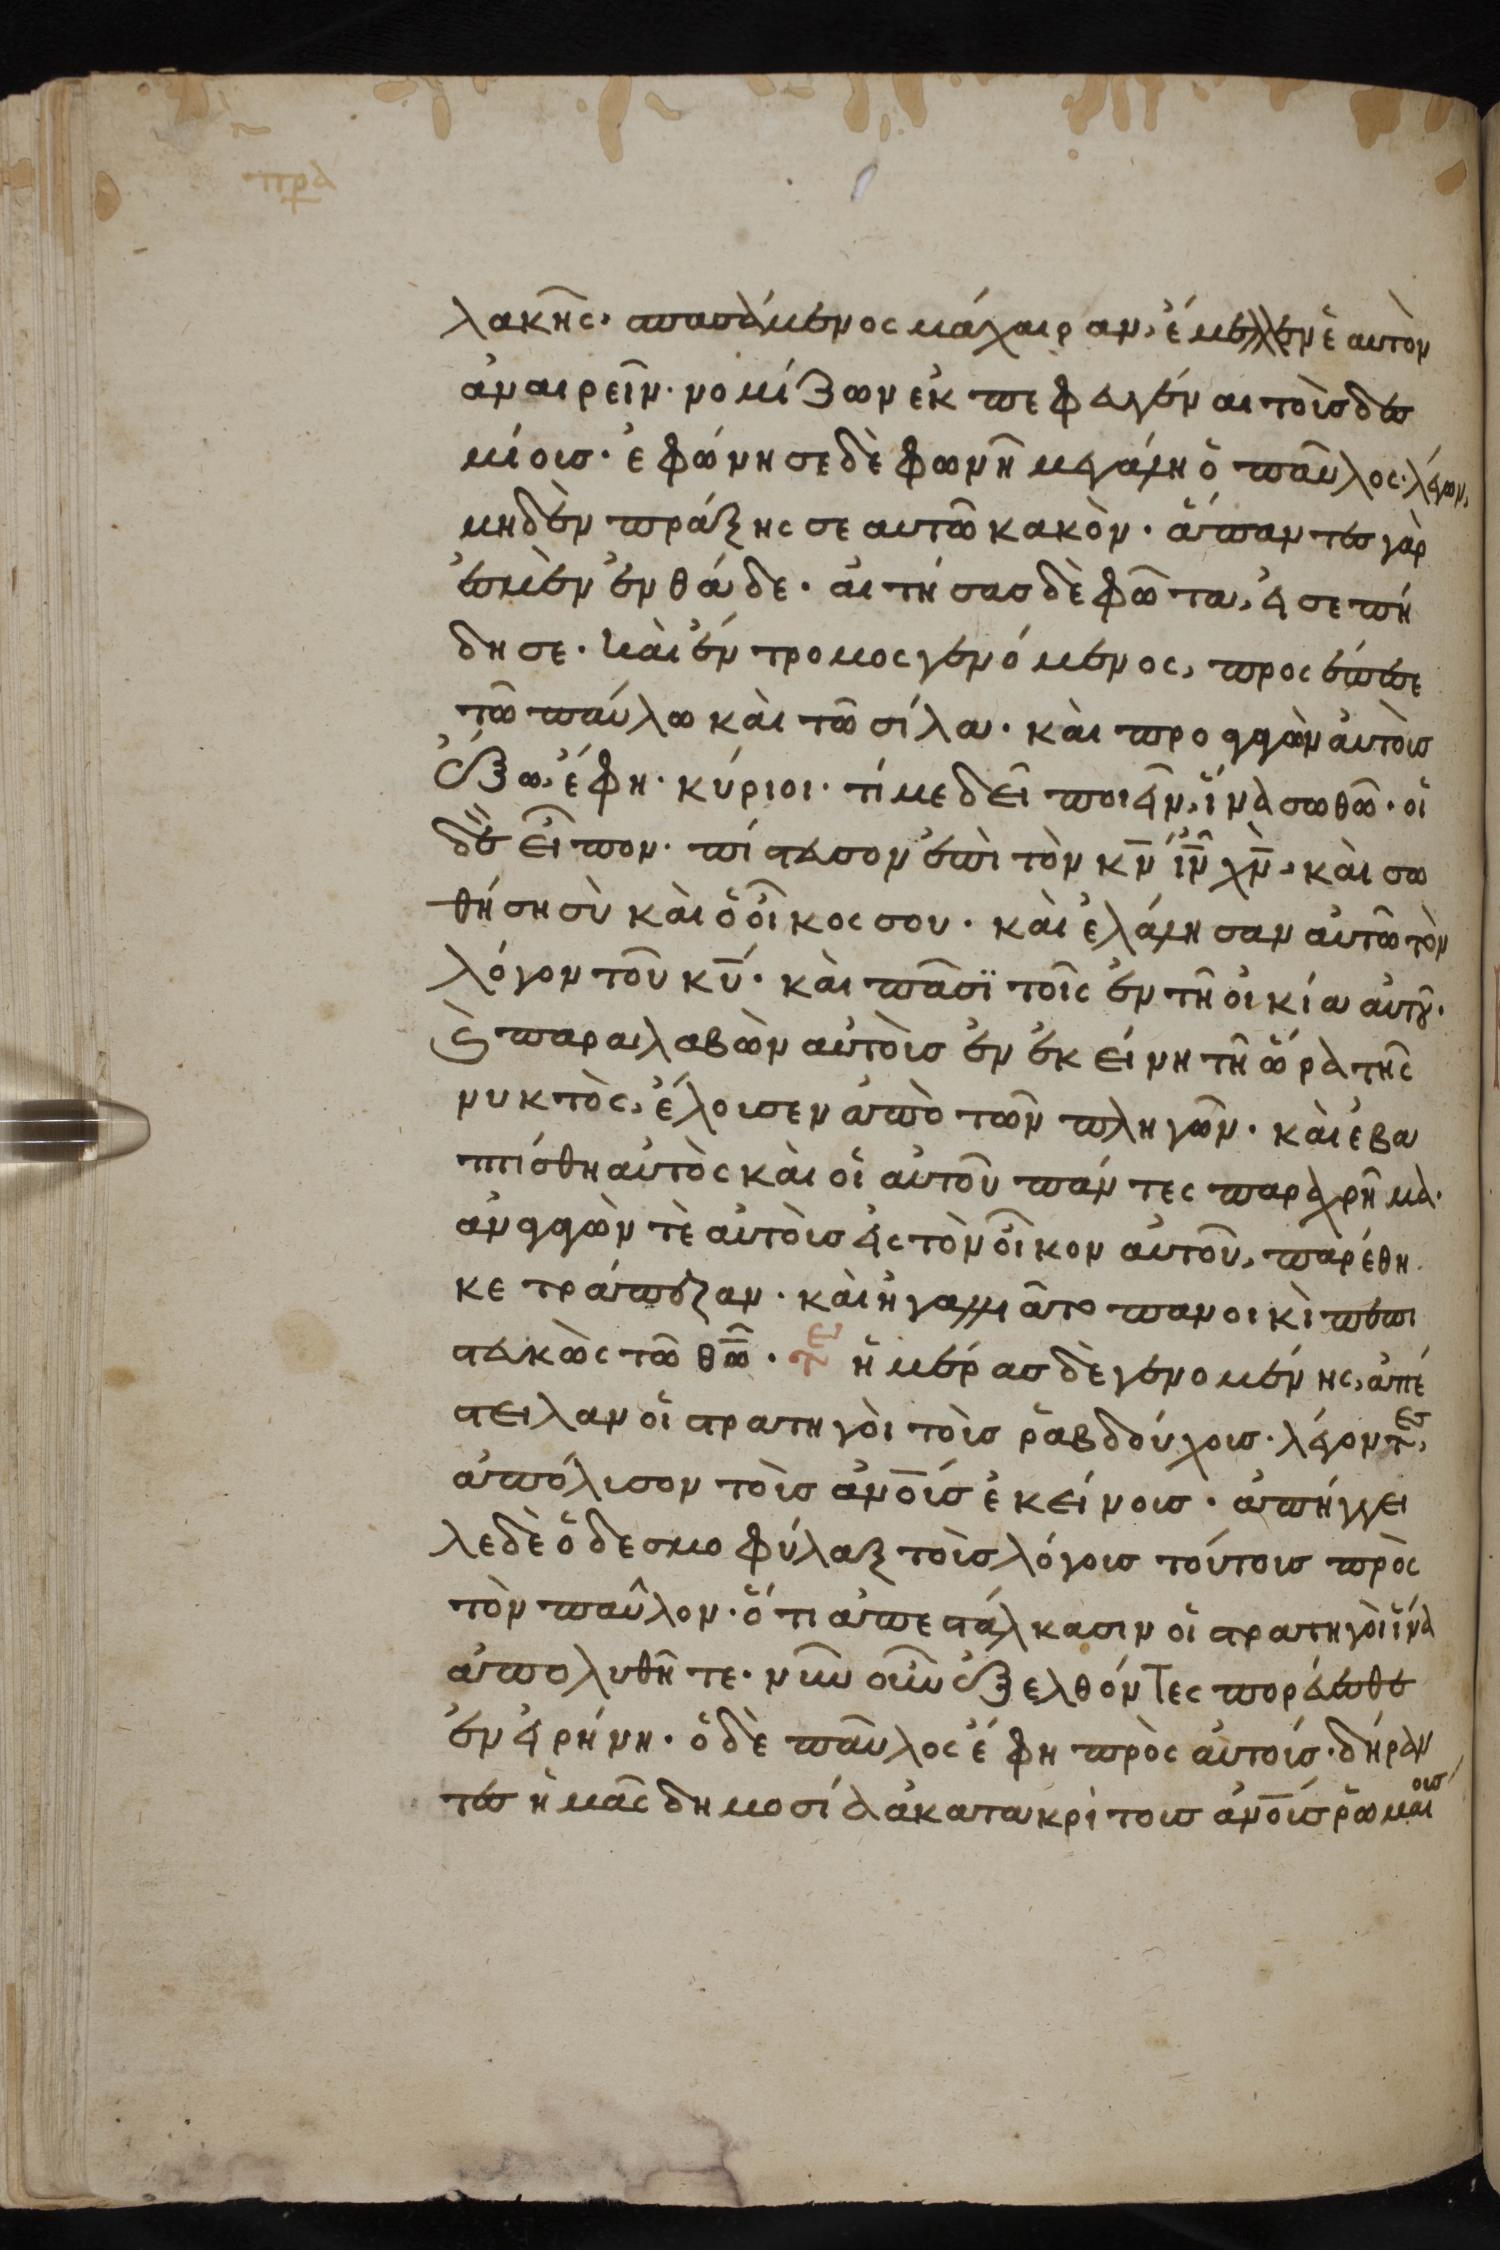 πρα
λακῆς· σπασάμενος μάχαιραν, ἔμελλεν ἑαυτὸν
ἀναιρεῖν· νομίζων ἐκπεφευγέναι τοὺς δεσ
μίους· ἐφώνησε δὲ φωνῆ μεγάλη ὁ παῦλος· λέγων,
μηδὲν πράξης σεαυτῶ κακὸν· ἅπαντες γὰρ
ἐσμὲν ἐνθάδε· αἰτήσας δὲ φῶτα, εἰσεπή
δησε· καὶ ἔντρομος γενόμενος, προσέπεσε
τῶ παύλω καὶ τῶ σίλα· καὶ προαγαγὼν αὐτοὺς
ἔξω, ἔφη· κύριοι· τί με δεῖ ποιεῖν, ἵνα σωθῶ· οἱ
δὲ εἶπον· πίστευσον ἐπὶ τὸν κν̅ ιν̅ χν̅, καὶ σω
θήση σὺ καὶ ὁ οἶκος σου· καὶ ἐλάλησαν αὐτῶ τὸν
λόγον τοῦ κυ̅· καὶ πᾶσϊ τοῖς ἐν τῆ οἰκία αὐτοῦ·
καὶ παραλαβὼν αὐτοὺς ἐν ἐκείνη τῆ ὥρα τῆς
νυκτὸς, ἔλουσεν ἀπὸ τῶν πληγῶν· καὶ ἐβα
πτίσθη αὐτὸς καὶ οἱ αὐτοῦ πάντες παραχρῆμα·
ἀναγαγὼν τὲ αὐτοὺς εἰς τὸν οἶκον αὐτοῦ, παρέθη
κε τράπεζαν· καὶ ἠγαλλιᾶτο πανοικὶ πεπι
στευκὼς τῶ θῶ̅· τε ἡμέρας δὲ γενομένης, ἀπέ
στειλαν οἱ στρατηγοὶ τοὺς ῥαβδούχους· λέγοντες,
ἀπόλυσον τοὺς ἀνο̅υς ἐκείνους· ἀπήγγει
λε δὲ ὁ δεσμοφύλαξ τοὺς λόγους τούτους πρὸς
τὸν παῦλον· ὅτι ἀπεστάλκασιν οἱ στρατηγοὶ ἵνα
ἀπολυθῆτε· νῦν οὖν ἐξελθόντες πορεύεσθε
ἐν εἰρήνη· ὁ δὲ παῦλος ἔφη πρὸς αὐτούς· δήραν
τες ἡμᾶς δημοσία ἀκατακρίτους ἀνο̅υς ῥωμαίους